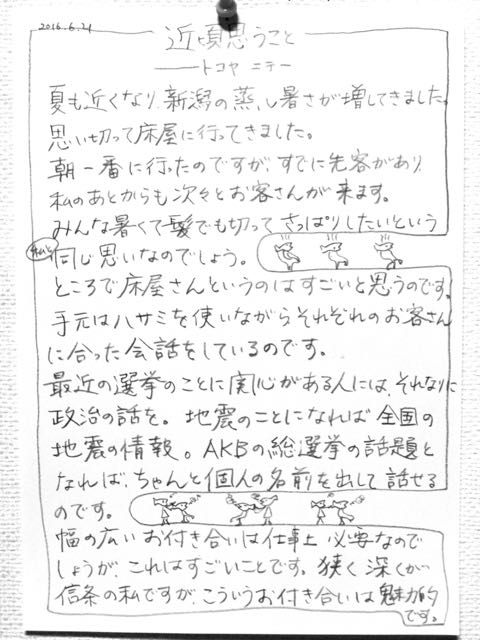 2016.6.21
近頃思うこと
トコヤ ニテー
夏も近くなり、新潟の蒸し暑さが増してきました。
思い切って床屋に行ってきました。
朝一番に行ったのですが、すでに先客があり
私のあとからも次々とお客さんが来ます。
みんな暑くて髪でも切って さっぱりしたいという
私と
同じ思いなのでしょう。
ところで床屋さんというのはすごいと思うのです。
手元はハサミを使いながらそれぞれのお客さん
に合った会話をしているのです。
最近の選挙のことに関心がある人には、それなりに
政治の話を。地震のことになれば全国の
地震の情報。AKBの総選挙の話題と
なれば、ちゃんと個人の名前を出して話せる
のです。
幅の広いお付き合いは仕事上必要なので
しょうが、これはすごいことです。狭く深くが
信条の私ですが、こういうお付き合いは魅力的
です。